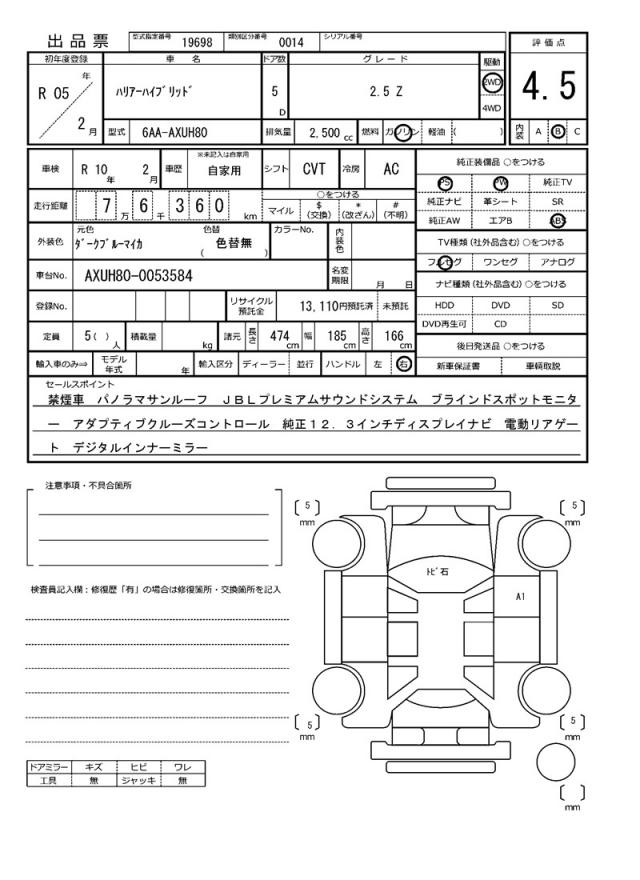 出品票 型式指定番号 19698 類別区分番号 0014 シリアル番号
初年度登録 車名 ドア数 グレード 駆動 評価点
R 05 年 2 月 ﾊﾘｱｰﾊｲﾌﾞﾘｯﾄﾞ 5 D 2.5 Z 2WD 4WD 4.5
型式 6AA-AXUH80 排気量 2,500 cc 燃料 ガソリン 軽油 ( ) 内装 A B C
車検 R 10 年 2 月 車歴 ※未記入は自家用 自家用 シフト CVT 冷房 AC 純正装備品 ○をつける
PS PW 純正TV
走行距離 7 万 6 千 3 6 0 km ○をつける 純正ナビ 革シート SR
マイル $ (交換) * (改ざん) # (不明) 純正AW エアB ABS
外装色 元色 ﾀﾞｰｸﾌﾞﾙｰﾏｲｶ 色替 ( 色替無 ) カラーNo. 内装色 TV種類 (社外品含む) ○をつける
フルセグ ワンセグ アナログ
車台No. AXUH80-0053584 名変期限 月 日 ナビ種類 (社外品含む) ○をつける
登録No. リサイクル預託金 13,110円預託済 未預託 HDD DVD SD
DVD再生可 CD
定員 5 ( ) 人 積載量 kg 諸元 長さ 474 cm 幅 185 cm 高さ 166 cm 後日発送品 ○をつける
輸入車のみ⇒ モデル年式 年 輸入区分 ディーラー 並行 ハンドル 左 右 新車保証書 車輌取説
セールスポイント
禁煙車 パノラマサンルーフ JBLプレミアムサウンドシステム ブラインドスポットモニタ
ー アダプティブクルーズコントロール 純正12.3インチディスプレイナビ 電動リアゲー
ト デジタルインナーミラー
注意事項・不具合箇所
検査員記入欄：修復歴「有」の場合は修復箇所・交換箇所を記入
ドアミラー キズ ヒビ ワレ
工具 無 ジャッキ 無
[ 5 ] mm [ 5 ] mm
ﾄﾋﾞ石
A1
[ 5 ] mm [ 5 ] mm
[ ] mm